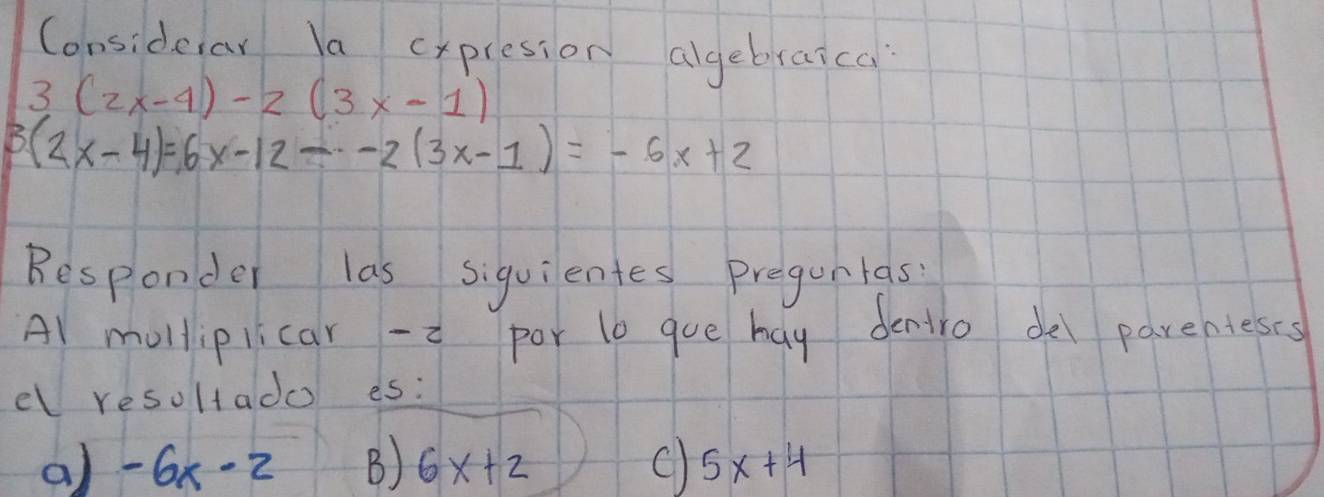 Considerar la expresion algebraica:
3 (2x-4) -2 (3x-1)
3(2x-4)=6x-12 - -2(3x-1) = -6x+2
Responder las siguientes preguntas:
Al multiplicar -2 por lo que hay dentro del parentesis
el resultado es:
a) -6x-2 B) 6x+2 C) 5x+4